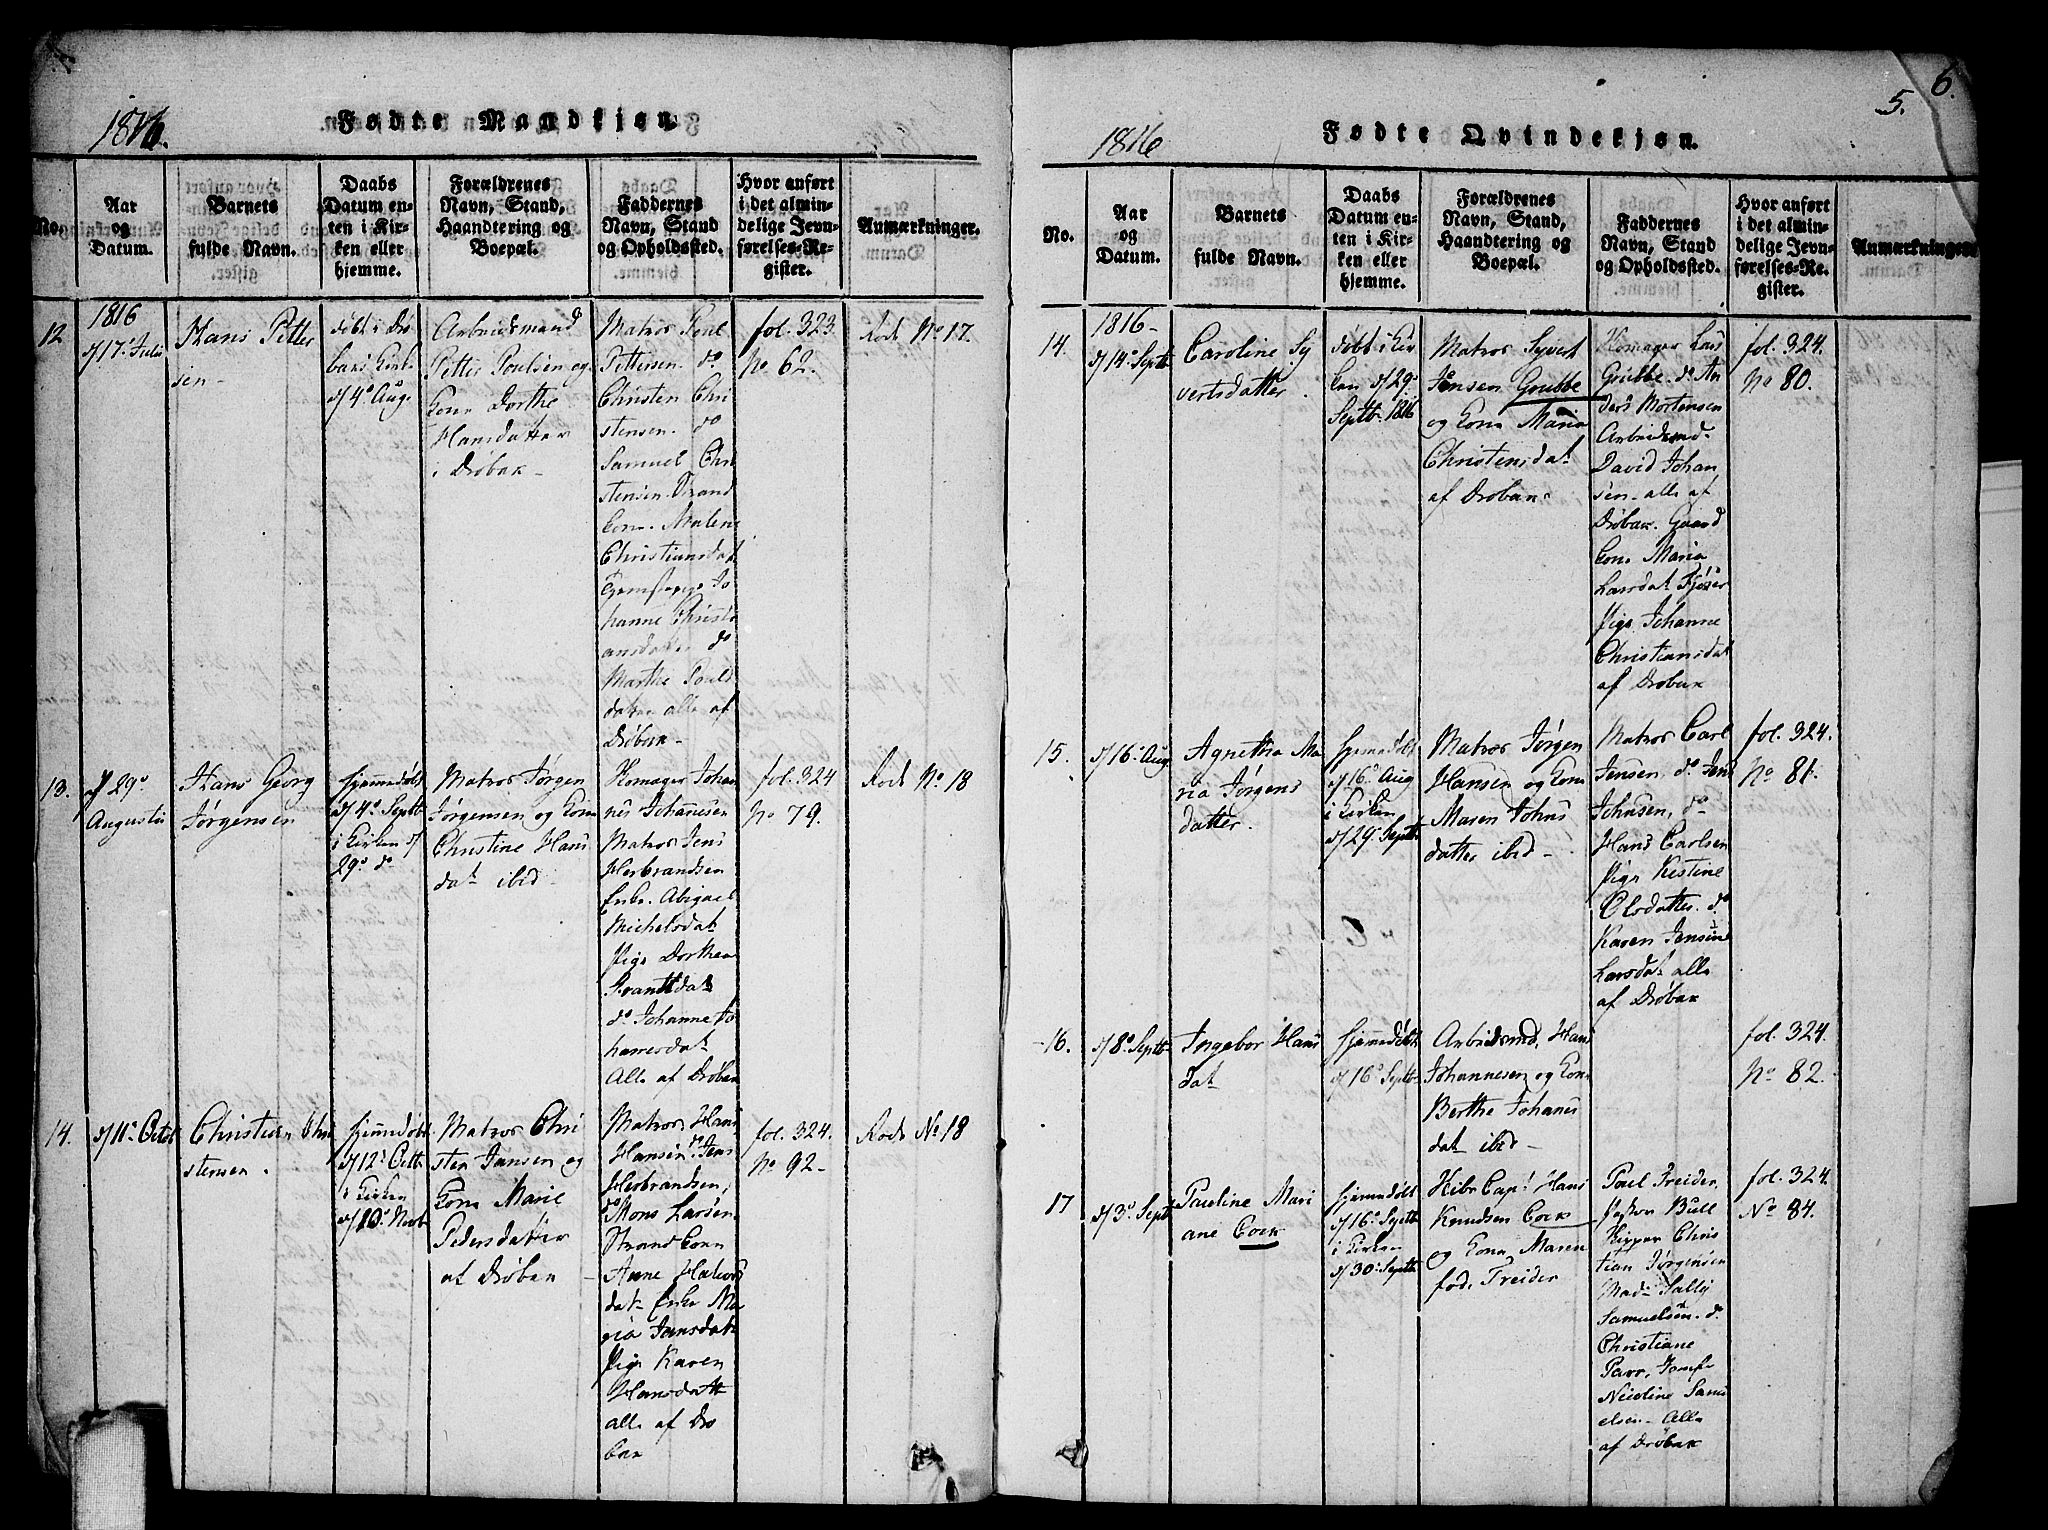 1816.
Fødte Mandkjøn.
No.
Aar
og
Datum.
Barnets
fulde Navn.
Daabs
Datum en-
ten i Kir-
ken eller
hjemme.
Forældrenes
Navn, Stand,
Haandtering og
Boepæl.
Faddernes
Navn, Stand
og Opholdssted.
Hvor anført
i det almin-
delige Jevn-
førelses-Re-
gister.
Anmærkninger.
12
1816
d/17. Julii
Hans Petter
sen-
døbt i Drø
baks Kirke
d/4° Aug.
Arbeidsmand
Petter Poulsen og
Kone Dorthe
Hansdatter
i Drøbak-
Matros Poul
Pettersen. d°
Christen Chri
stensen. d°
Samuel Chri
stensen. Strand
Kone. Malene
Christiansdat
Jo
hanne Christi
ansdatter d°
Marthe Pouls
datter alle af
Drøbak-
fol. 323.
No 62.
Kode No. 17.
13.
d/29°
Augustii
Hans Georg
Jørgensen
hjemmedøbt
d/4° Septb
i Kirken d/
29° d°
Matros Jørgen
Jørgensen og Kone
Christine Hans
dat ibid-
Homager Johan
nes Johannesen
Matros Jens
Herbrandsen
Enke. Abigael
Michelsdat
Pige Dorthea
dat
d° Johanne Jo
hannesdat
Alle af Drøbak
fol. 324
No 79.
Kode No. 18
14.
d/11° Octob
Christian Chri
stensen.
hjemmedøbt
d/12° Octb
i Kirken
d/10° Novb
Matros Chri
sten Jansen og
Kone Marie
Pedersdatter
af Drøbak-
Matros Hans
Hansen d° Jens
Herbrandsen,
d° Mons Larsen
Strand Kone
Anne Halvors
dat- Enke Ma
ria Jansdat
Pige Karen
Hansdatt
alle af Drø
bak
fol. 324.
No 92-
Kode No. 18
5.
6.
1816
Fødte Qvindekjøn.
No.
Aar
og
Datum.
Barnets
fulde Navn.
Daabs
Datum en-
ten i Kir-
ken eller
hjemme.
Forældrenes
Navn, Stand,
Haandtering og
Boepæl.
Faddernes
Navn, Stand
og Opholdssted.
Hvor anført
i det almin-
delige Jevn-
førelses-Re-
gister.
Anmærkninger.
14.
1816-
d/14° Septb
Caroline Sy
vertsdatter.
døbt i Kir
ken d/29°
Septb. 1816
Matros Syvert
Jensen Grubbe
og Kone Maria
Christensdat
af Drøbak.
Homager Lars
Grubbe. d° An
ders Mortensen
Arbeidsmd.
David Johan
sen. alle af
Drøbak. Gaard
Kone Maria
Larsdat
Pige Johanne
Christiansdat
af Drøbak
fol. 324.
No 80.
15.
d/16. Aug
Agnetha Ma
ria Jørgens
datter.
hjemmedøbt
d/16° Aug
i Kirken
d/29. Septb
Matros Jørgen
Hansen og Kone
Maren Johns
datter ibid-
Matros Carl
Jensen. d° Jens
Johnsen, d°
Hans Carlsen
Pige Kestine
Olsdatter. d°
Karen Jensine
Larsdat alle
af Drøbak
fol. 324.
No 81.
16.
d/8° Septb
Ingebor Hans
dat
hjemmedøbt
d/16° Septb
Arbeidsmd, Hans
Johannesen og Kone
Berthe Johans
dat ibid-
fol. 324.
No 82.
17
d/3° Septb
Pauline Mari
ane Cock
hjemmedøbt
d/16° Septb
i Kirken
d/30. Septb
Skibs Capt. Hans
Knudsen Cock
og Kone Maren
fød. Treider
Poul Treider,
Bull
Skipper Chris
tian Jørgensen
Mad. Sally
Samuelsen. d°
Christiane
Parr, Jomfr
Nicoline Samu
elsen- Alle
af Drøbak
fol. 324.
No 84.